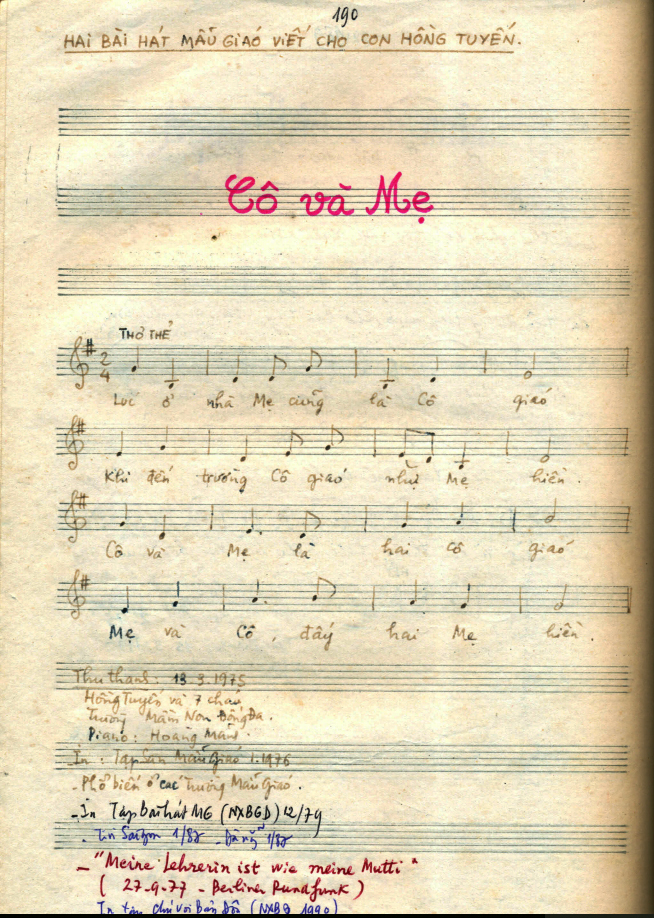 190
HAI BÀI HÁT MẪU GIÁO VIẾT CHO CON HỒNG TUYẾN.
Cô và Mẹ
THỎ THẺ
2
4
Lúc ở nhà Mẹ cũng là Cô giáo
Khi đến trường Cô giáo như Mẹ hiền.
Cô và Mẹ là hai cô giáo
Mẹ và Cô, đấy hai Mẹ hiền.
Thu thanh: 13.3.1975
Hồng Tuyến và 7 cháu
Trường Mầm Non Đống Đa.
Piano: Hoàng Mãnh.
In: Tập San Mẫu Giáo 1.1976
- Phổ biến ở các Trường Mẫu Giáo.
- In Tập bài hát MG (NXBGD) 12/79
. In Saigon 1/82 - Đà nẵng 1/82
- "Meine Lehrerin ist wie meine Mutti"
( 27.9.77 - Berliner Rundfunk )
In (NXBGD 1990)